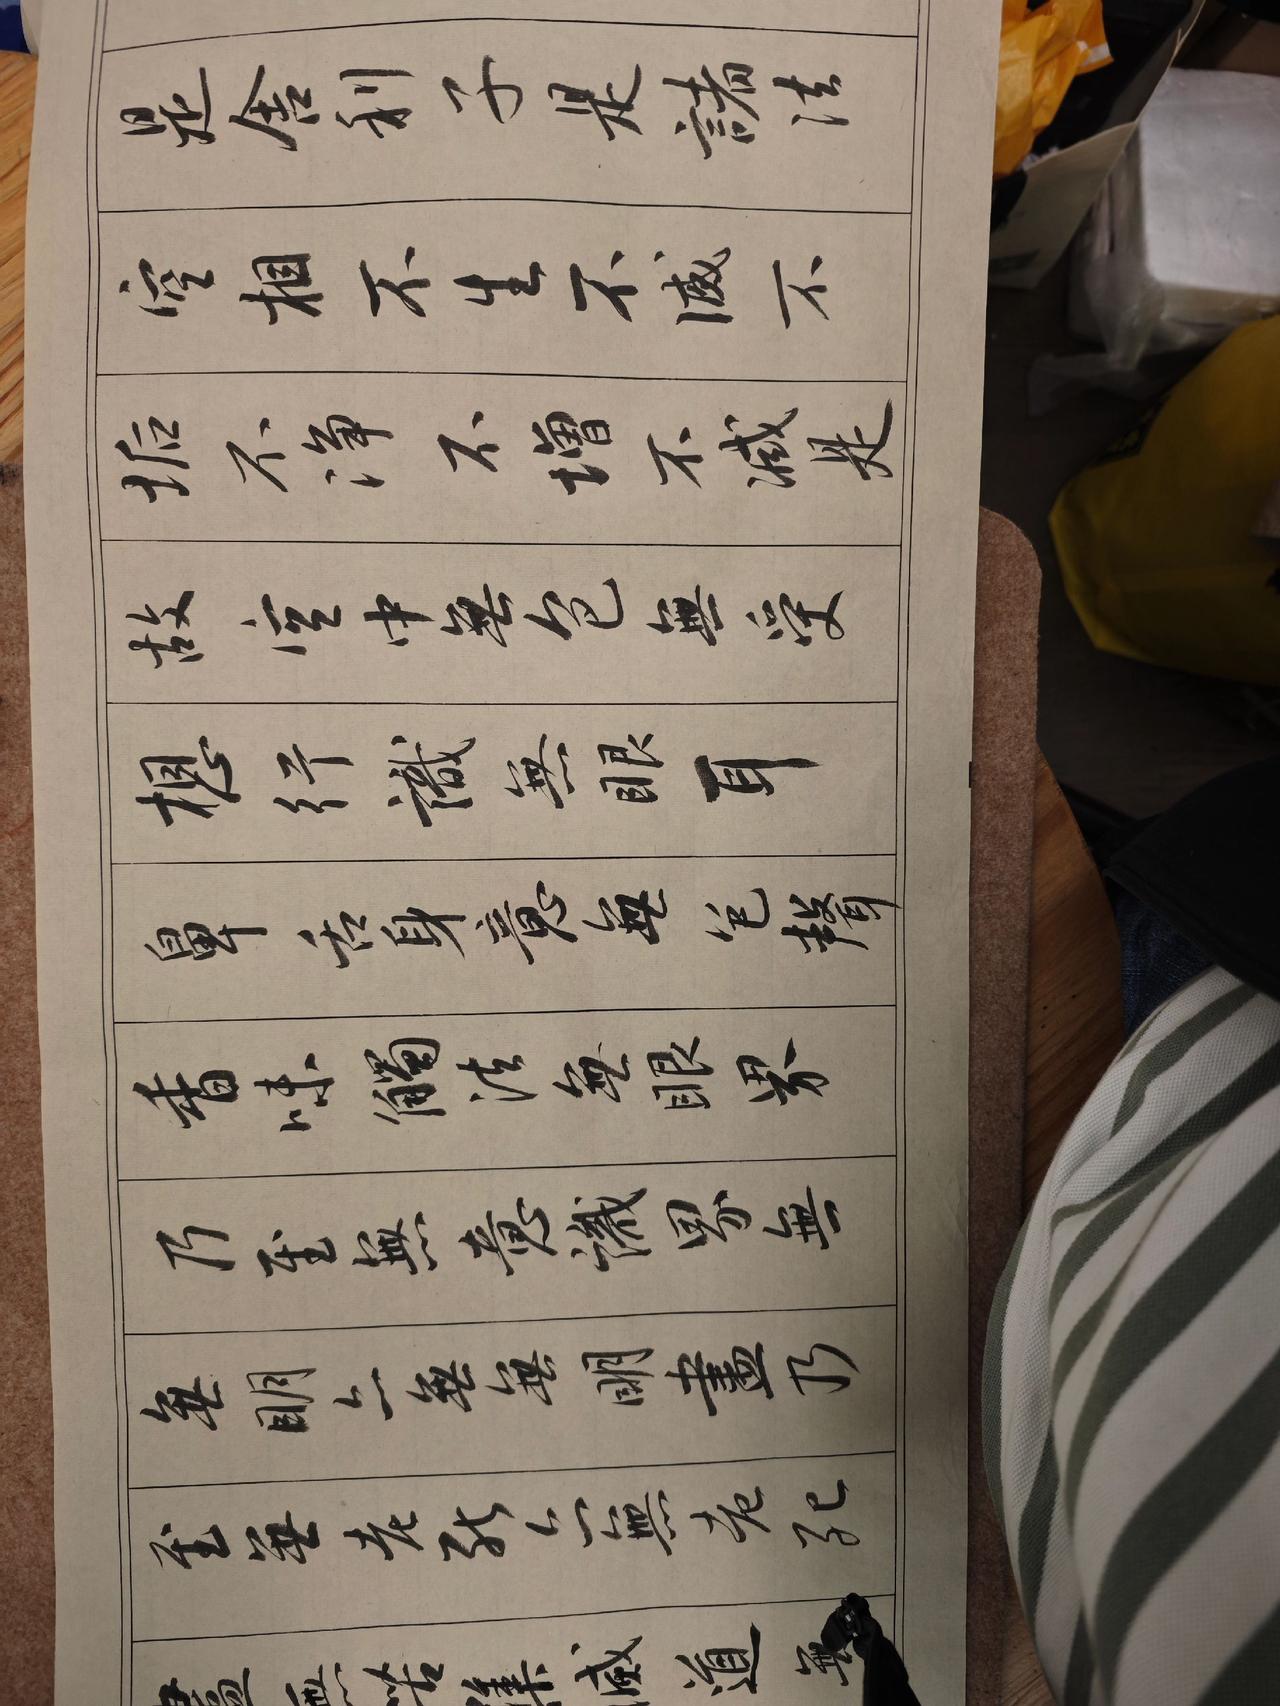 是舍利子是諸法
空相不生不滅不
垢不淨不增不減是
故空中無色無受
想行識無眼耳
鼻舌身意無色聲
香味觸法無眼界
乃至無意識界無
無明亦無無明盡乃
至無老死亦無老死
盡無苦集滅道無